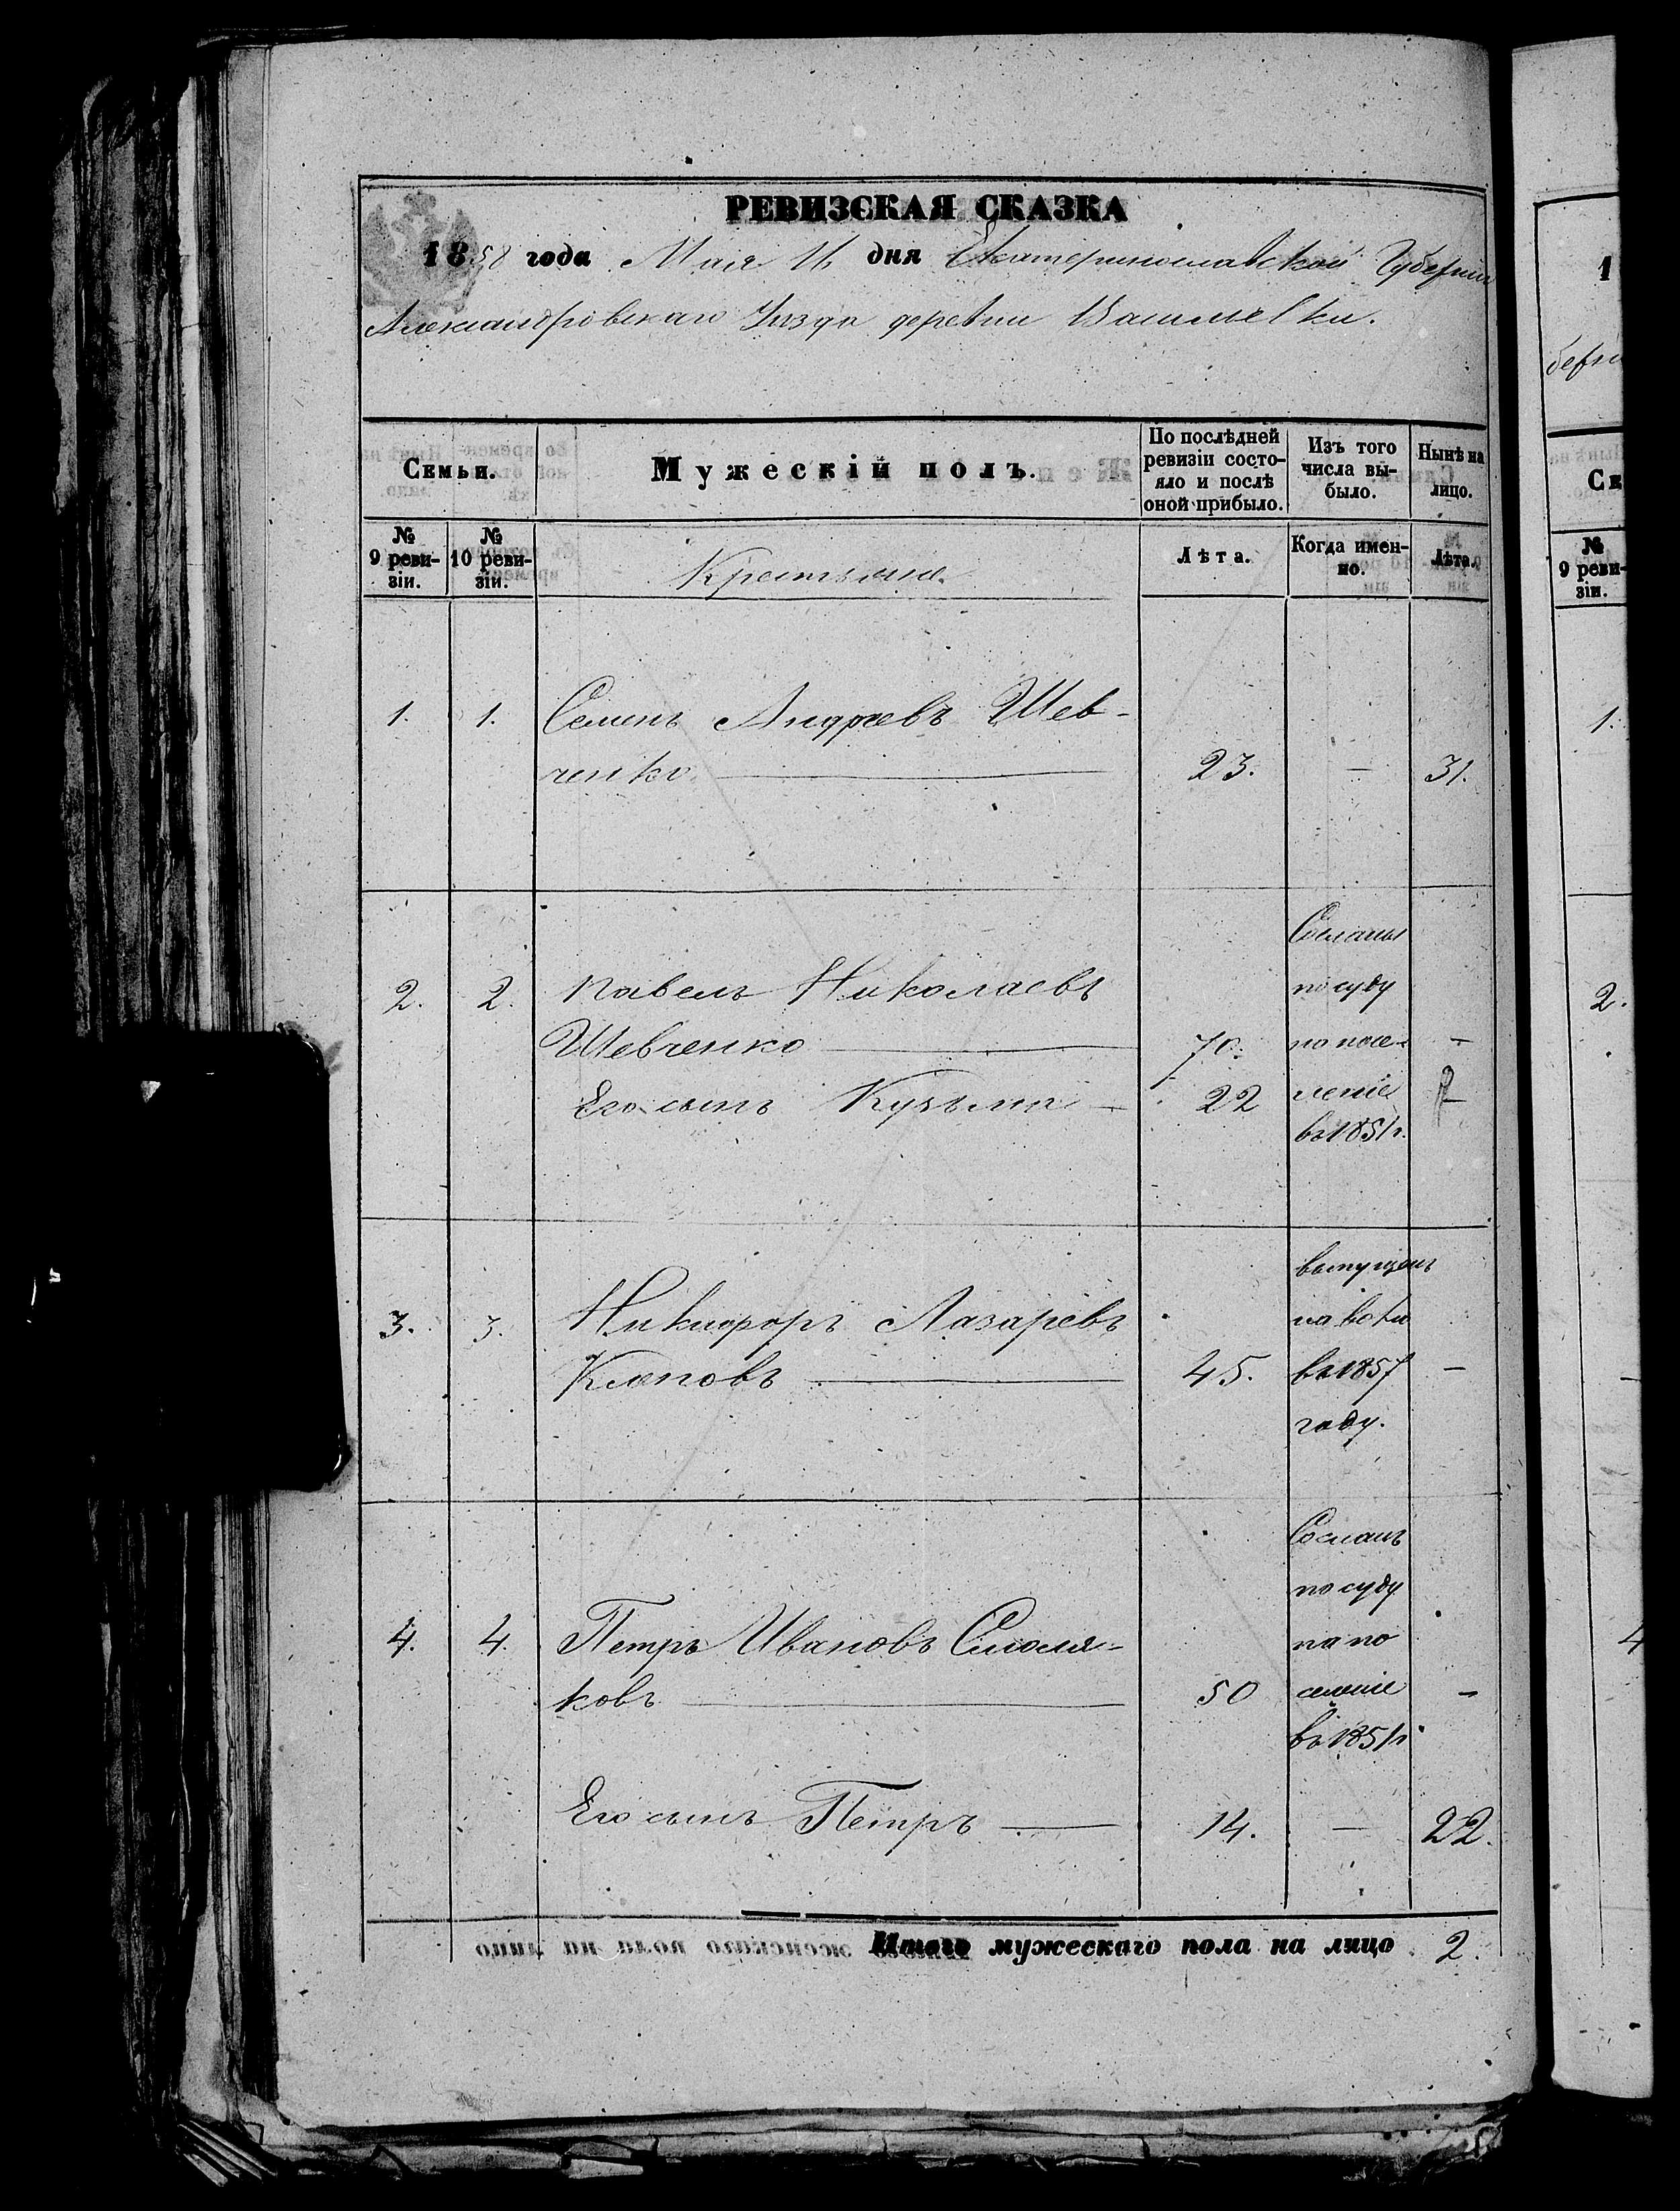 РЕВИЗСКАЯ СКАЗКА
1858 года Мая 16 дня Екатеринославской Губерніи
Александровскаго Уѣзда деревни Васильевки.
Семьи.
Мужескій полъ.
По послѣдней ревизіи состояло и послѣ оной прибыло.
Изъ того числа выбыло.
Нынѣ на лицо.
№ 9 ревизіи.
№ 10 ревизіи.
Крестьяне.
Лѣта.
Когда именно.
Лѣта.
1. 1. Семенъ Андреевъ Шев-
ченко 23. — 31.
Сосланы
2. 2. Павелъ Николаевъ по суду
Шевченко 70. на посе- —
Его сынъ Кузьма — 22 леніе —
въ 1851 г.
выпущенъ
3. 3. Никифоръ Лазаревъ на волю
45. въ 1857 —
году.
Сосланъ
по суду
4. 4. Петръ Ивановъ Смоля- на по
ковъ 50 селеніе —
въ 1851 г.
Его сынъ Петръ — 14. — 22.
Итого мужескаго пола на лицо 2.
1
берн
Се
№
9 реви-
зіи.
1.
2.
4